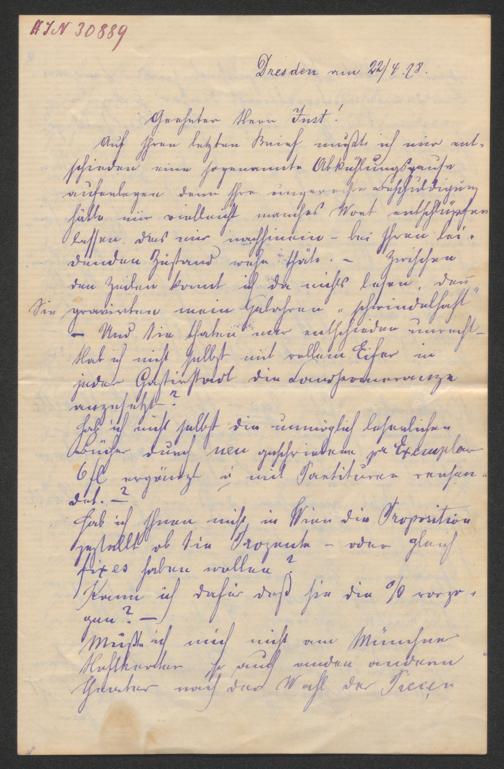 HJN 30889
Dresden am 22/4.93.
Geehrter Herr Just!
Auf Ihren letzten Brief mußte ich mir ent-
schieden eine sogenannte Abkühlungspause
auferlegen denn Ihre ungerechte Beschuldigung
hätte mir vielleicht manches Wort entschlüpfen
lassen, das mir nachhinein – bei Ihrem lei-
denden Zustand wehe thäte. – Zwischen
den Zeilen konnt ich da nichts lesen, denn
Sie gravirten mein Gebahren „schwindelhaft"
– Und Sie thaten mir entschieden unrecht –
Hab ich nicht selbst mit vollem Eifer in
jeder Gastirstadt die
anzusetzt –?
Hab ich nicht selbst die unmöglich leserlichen
Bücher durch neu geschriebene pr Exemplar
6 fl ergänzt u mit Partituren versen-
det. –?
Hab ich Ihnen nicht in Wien die Proposition
gestellt ob Sie Prozente – oder gleich
fixes haben wollen?
Kann ich dafür daß sie die % vorzo-
gen? –
Mußte ich mich nicht am Münchner
Hoftheater so auch an den anderen
Theater nach der Wahl der Piecen